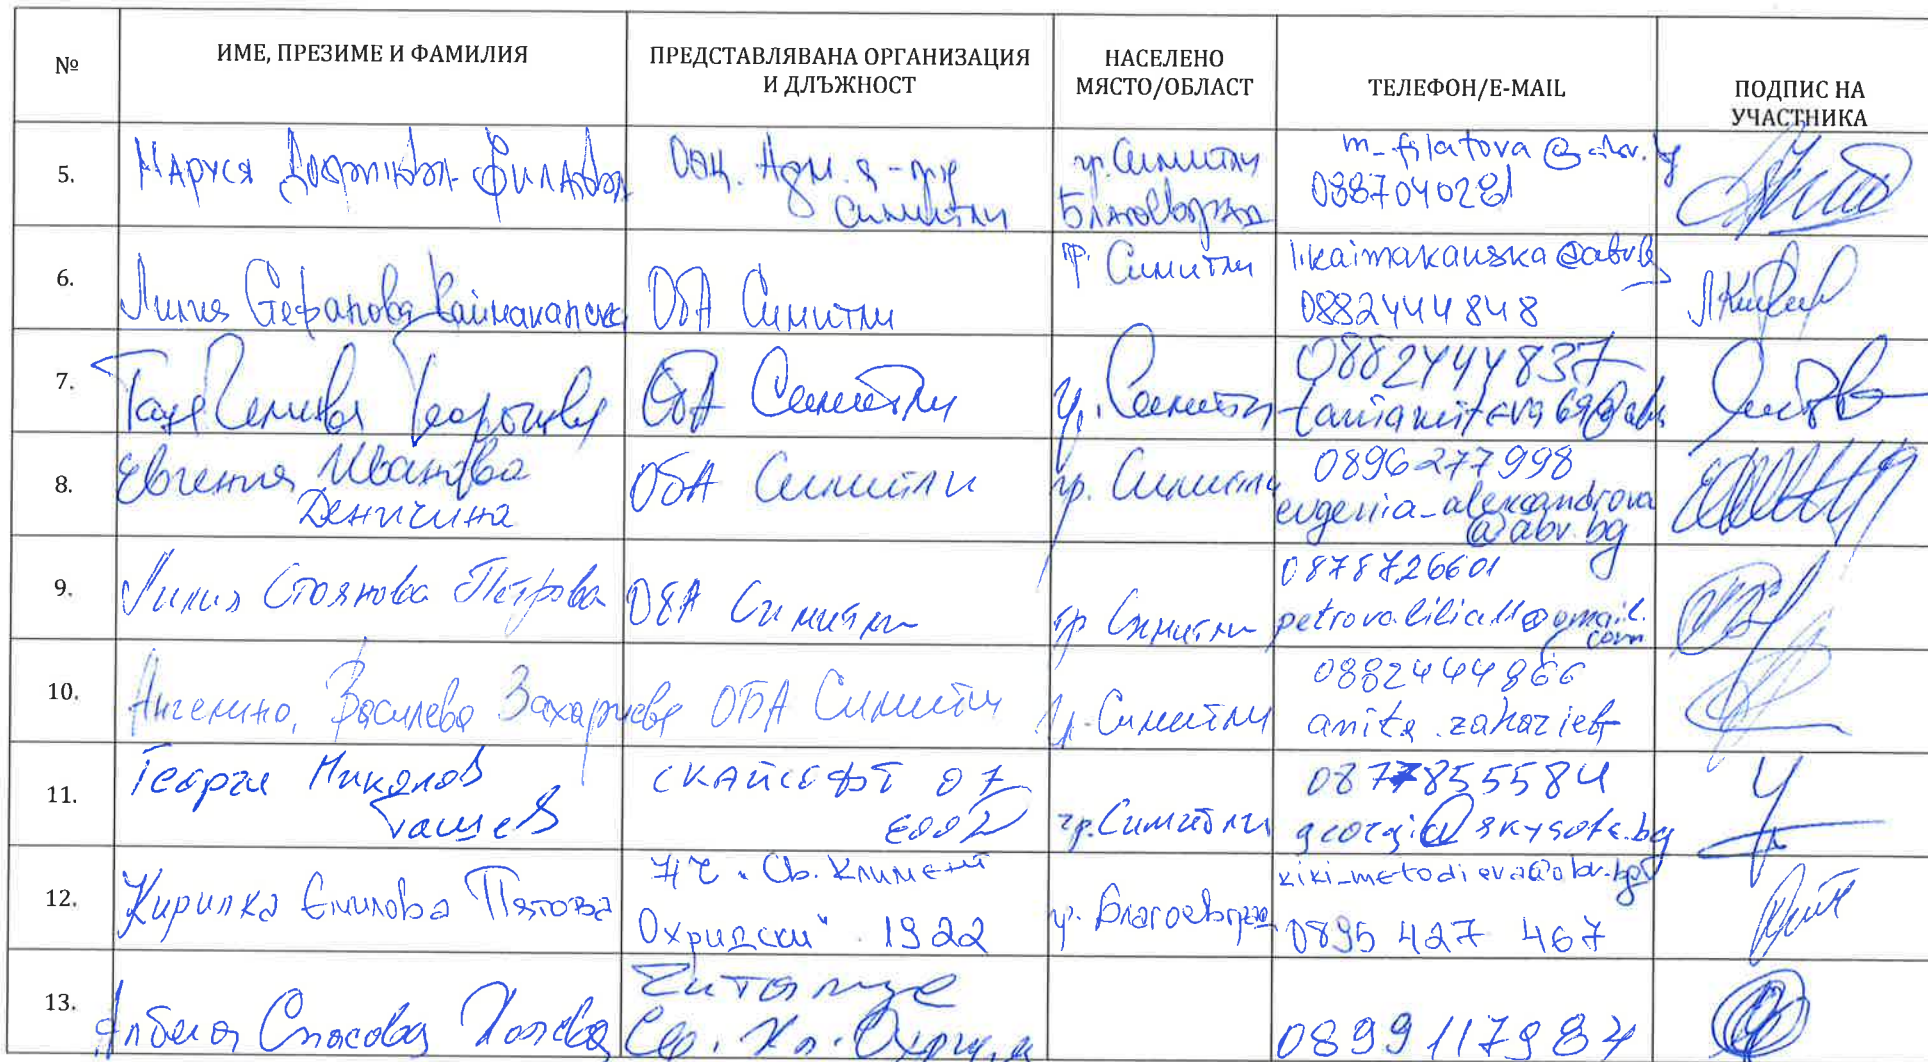 № ИМЕ, ПРЕЗИМЕ И ФАМИЛИЯ ПРЕДСТАВЛЯВАНА ОРГАНИЗАЦИЯ И ДЛЪЖНОСТ НАСЕЛЕНО МЯСТО/ОБЛАСТ ТЕЛЕФОН/E-MAIL ПОДПИС НА УЧАСТНИКА
5. Маруся Филатова
Общ. Адм.я - гр Симитли
гр. Симитли Благоевград
m_filatova@abv.bg
0887040281
6. Лилия Стефанова Каймаканска ОбА Симитли гр. Симитли
lkaimakanska@abv.bg
0882444848
7. Таня Георгиева ОбА Симитли гр. Симитли
0882444837
taniamiteva69@abv
8. Евгения Иванова Деничина ОбА Симитли гр. Симитли
0896277998
evgenia_alexandrova
@abv.bg
9. Лилия Стоянова Петрова ОбА Симитли гр Симитли
0878726601
petrova.lilia11@gmail.
com
10. Ангелина Василева Захариева ОБА Симитли гр. Симитли
0882444866
anita.zaharieva
11. Георги Николов Ташев
СКАЙСОФТ 07 ЕООД
гр. Симитли
0877855584
georgi@skysoft.bg
12. Кирилка Емилова Пятова
НЧ "Св. Климент
Охридски" 1922
гр. Благоевград
kiki_metodieva@abv.bg
0895 427 467
13. Албена Спасова
Читалище
Св. Кл. Охридски
0899117984